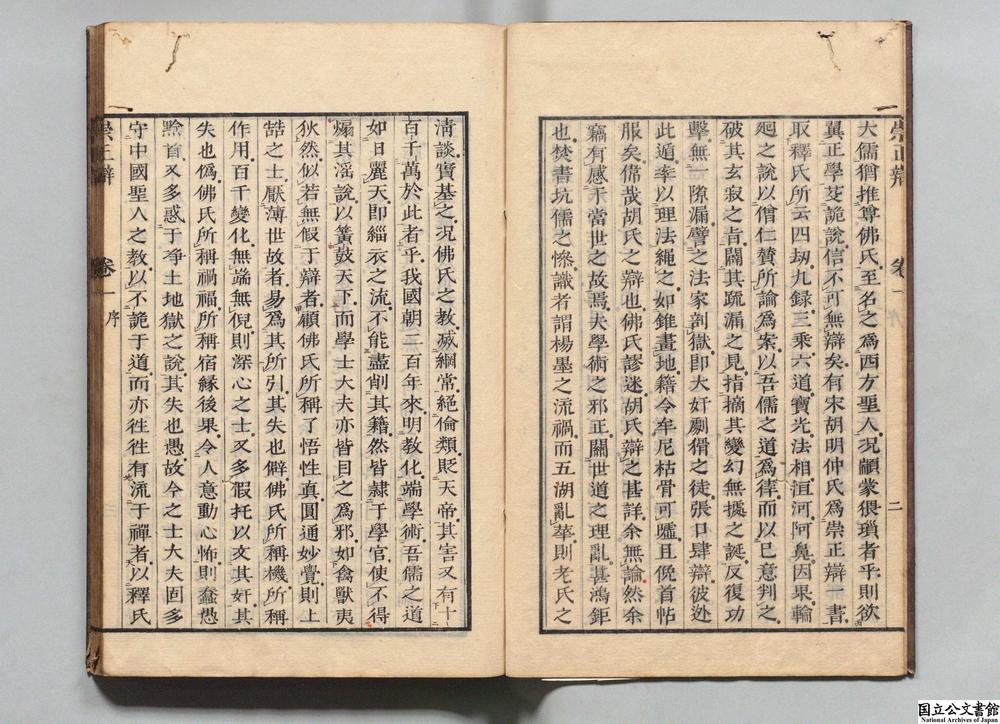 崇正辯 卷一 序 二
大儒猶推尊佛氏至名之爲西方聖人况顓蒙猥瑣者乎則欲
翼正學芟詭說信不可無辯矣有宋胡明仲氏爲崇正辯一書
取釋氏所云四劫九録三乘六道寶光法相洹河阿鼻因果輪
廻之說以僧仁賛所論爲案以吾儒之道爲律而以已意判之
破其玄寂之旨闢其疏漏之見指摘其變幻無據之誕反復功
擊無一隙漏譬之法家剖獄即大奸劇猾之徒張口肆辯彼迯
此遁率以理法繩之如錐畫地籍令牟尼枯骨可噓且俛首帖
服矣偉哉胡氏之辯也佛氏謬迷胡氏辯之甚詳余無論然余
竊有感于當世之故焉夫學術之邪正關世道之理亂甚鴻鉅
也焚書坑儒之慘識者謂楊墨之流禍而五湖亂華則老氏之
清談實基之况佛氏之教滅綱常絕倫類貶天帝其害又有十
百千萬於此者乎我國朝二百年來明教化端學術吾儒之道
如日麗天即緇衣之流不能盡削其籍然皆隸于學官使不得
煽其滛說以簧鼓天下而學士大夫亦皆目之爲邪如禽獸夷
狄然似若無假于辯者顧佛氏所稱了悟性真圓通妙覺則上
喆之士厭薄世故者易爲其所引其失也僻佛氏所稱機所稱
作用百千變化無端無倪則深心之士又多假托以文其奸其
失也僞佛氏所稱禍福所稱宿緣後果令人意動心怖則蠢愚
黔首又多惑于淨土地獄之說其失也愚故今之士大夫固多
守中國聖人之教以不詭于道而亦往往有流于禪者以釋氏
崇正辯 卷一 序
国立公文書館
National Archives of Japan